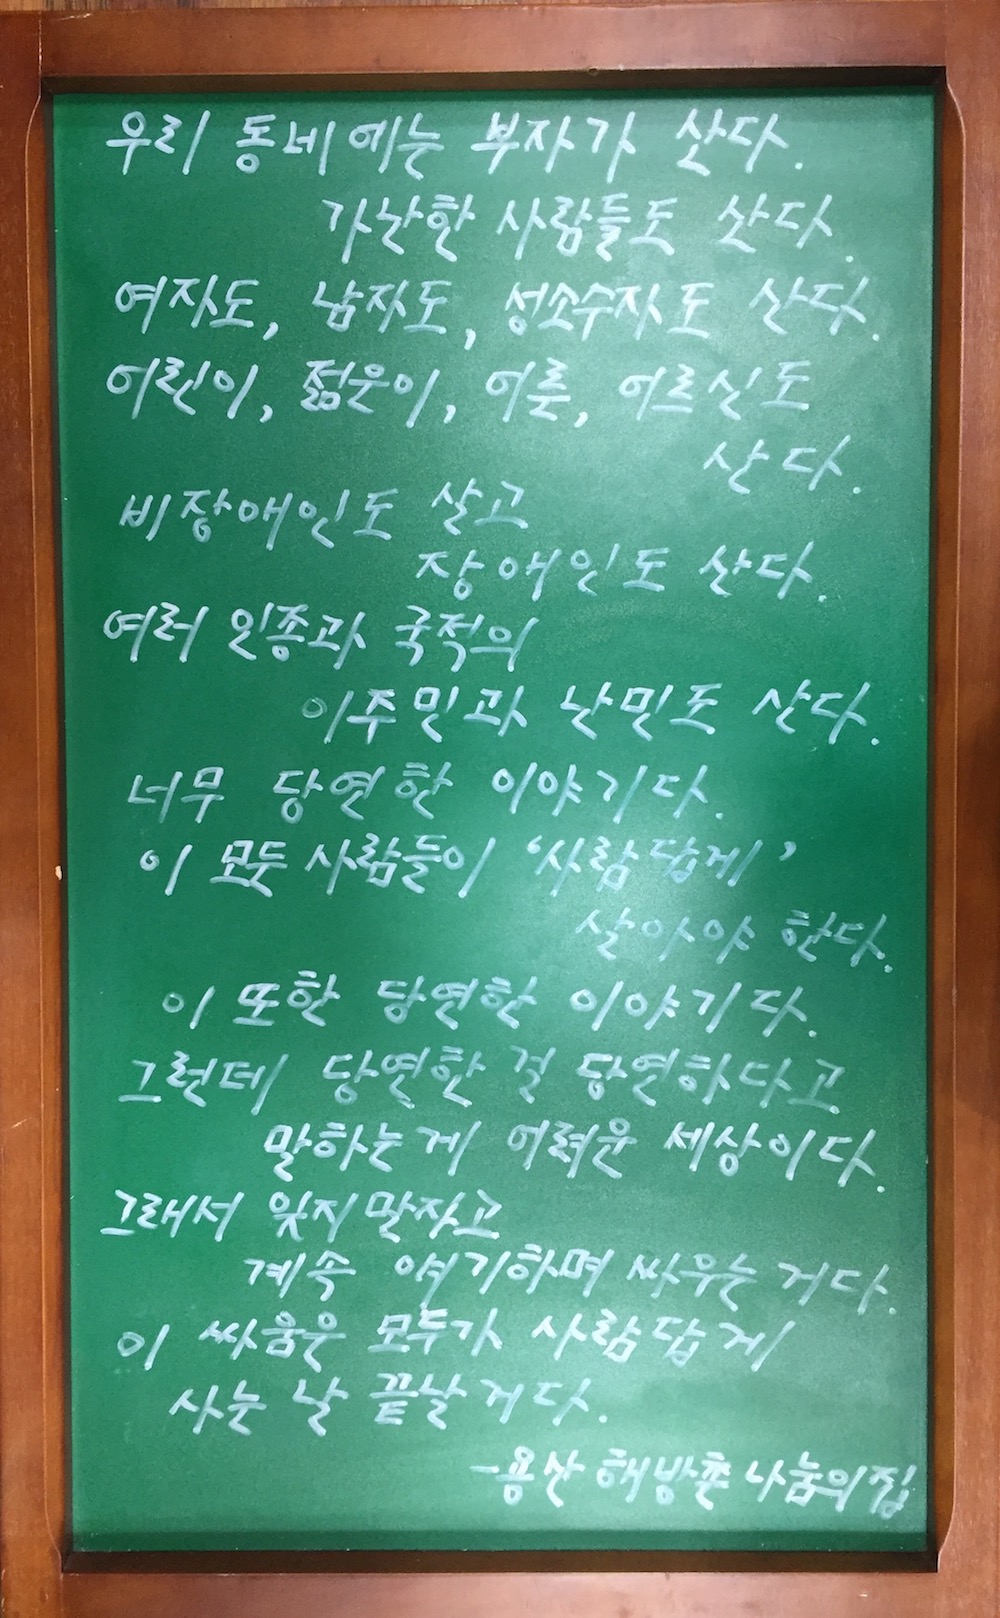 우리 동네에는 부자가 산다.
가난한 사람들도 산다.
여자도, 남자도, 성소수자도 산다.
어린이, 젊은이, 어른, 어르신도
산다.
비장애인도 살고
장애인도 산다.
여러 인종과 국적의
이주민과 난민도 산다.
너무 당연한 이야기다.
이 모든 사람들이 '사람답게'
살아야 한다.
이 또한 당연한 이야기다.
그런데 당연한 걸 당연하다고
말하는 게 어려운 세상이다.
그래서 잊지 말자고
계속 얘기하며 싸우는 거다.
이 싸움은 모두가 사람답게
사는 날 끝날 거다.
-용산 해방촌 나눔의집